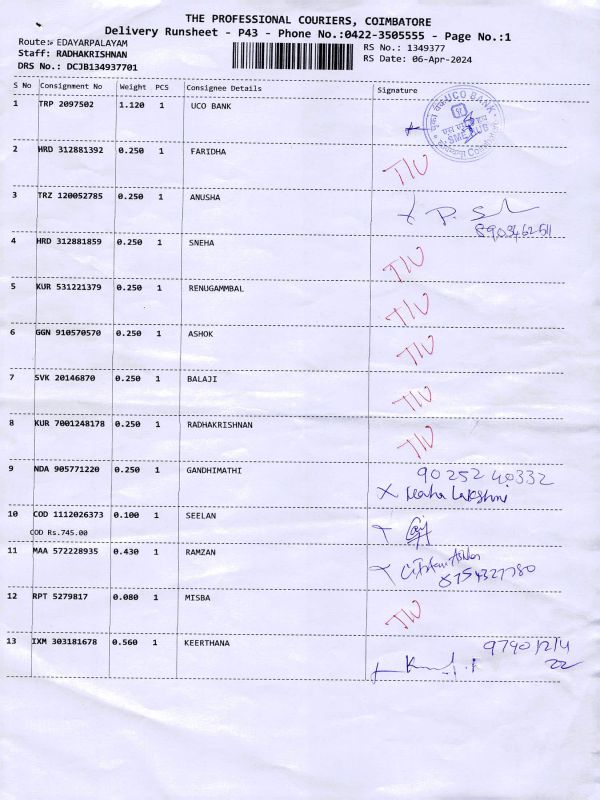 THE PROFESSIONAL COURIERS, COIMBATORE
Delivery Runsheet - P43 - Phone No.:0422-3505555 - Page No.:1
Route:- EDAYARPALAYAM
RS No.: 1349377
Staff: RADHAKRISHNAN
RS Date: 06-Apr-2024
DRS No.: DCJB134937701
S No Consignment No Weight PCS Consignee Details Signature
1 TRP 2097502 1.120 1 UCO BANK
UCO BANK
SME HUB
2 HRD 312881392 0.250 1 FARIDHA
3 TRZ 120052785 0.250 1 ANUSHA
4 HRD 312881859 0.250 1 SNEHA
5 KUR 531221379 0.250 1 RENUGAMMBAL
6 GGN 910570570 0.250 1 ASHOK
7 SVK 20146870 0.250 1 BALAJI
8 KUR 7001248178 0.250 1 RADHAKRISHNAN
9 NDA 905771220 0.250 1 GANDHIMATHI
90252 40332
Maha Lakshmi
10 COD 1112026373 0.100 1 SEELAN
COD Rs.745.00
11 MAA 572228935 0.430 1 RAMZAN
8754327780
12 RPT 5279817 0.080 1 MISBA
13 IXM 303181678 0.560 1 KEERTHANA